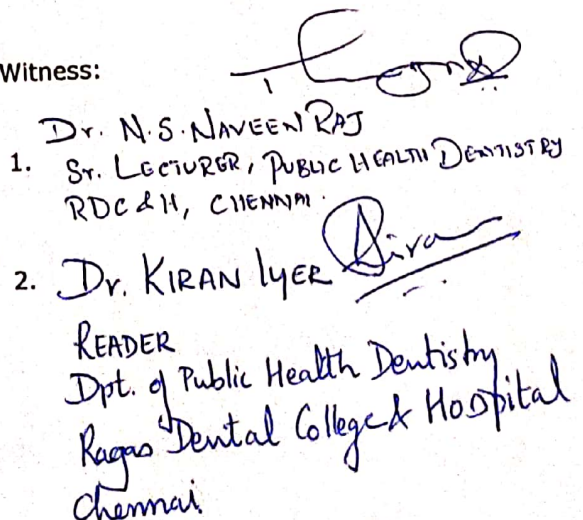 Witness:
Dr. N.S. NAVEEN RAJ
1. Sr. LECTURER, PUBLIC HEALTH DENTISTRY
RDC & H, CHENNAI.
2. Dr. KIRAN IYER
READER
Dpt. of Public Health Dentistry
Ragas Dental College & Hospital
Chennai.